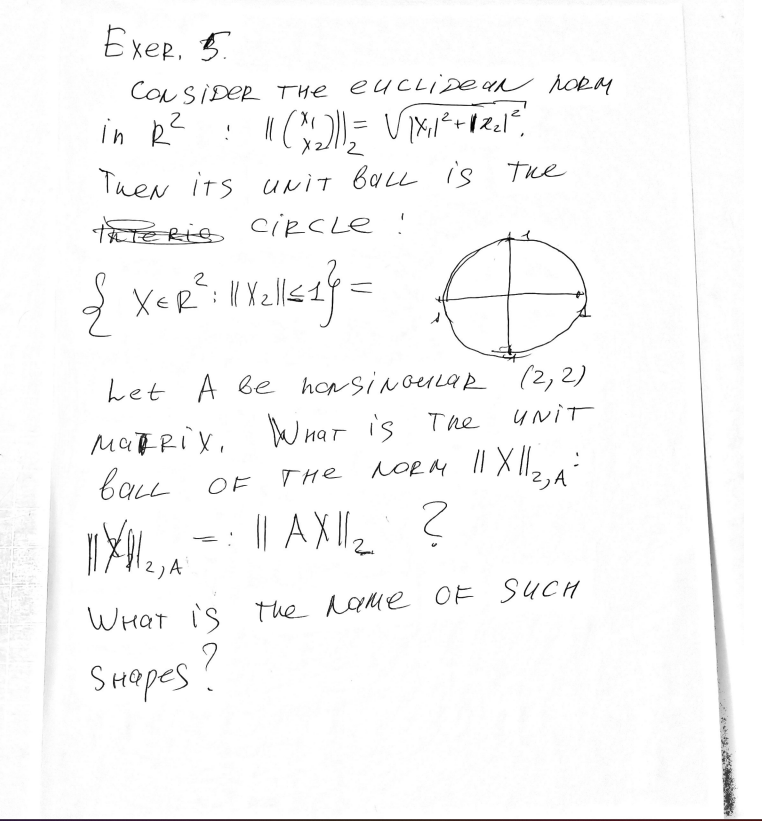 Exer. 5.
Consider the euclidean norm
in R² : ‖(x₁ x₂)‖₂ = √|x₁|²+|x₂|².
Then its unit ball is the
circle :
{ X∈R² : ‖X₂‖≤1} =
1
1
1
Let A be nonsingular (2,2)
matrix. What is the unit
ball of the norm ‖X‖₂,A :
‖X‖₂,A =: ‖AX‖₂ ?
What is the name of such
shapes?